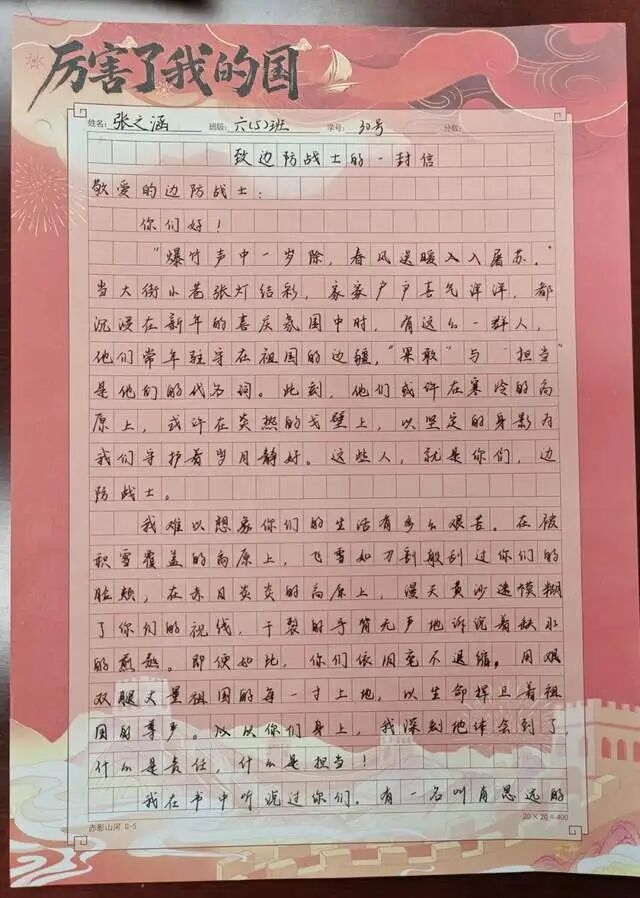 厉害了我的国
姓名: 张之涵 班级: 六(5)班 学号: 30号 分数:
致边防战士的一封信
敬爱的边防战士:
你们好!
"爆竹声中一岁除,春风送暖入入屠苏。"
当大街小巷张灯结彩,家家户户喜气洋洋,都
沉浸在新年的喜庆氛围中时,有这么一群人,
他们常年驻守在祖国的边疆,"果敢"与"担当"
是他们的代名词。此刻,他们或许在寒冷的高
原上,或许在炎热的戈壁上,以坚定的身影为
我们守护着岁月静好。这些人,就是你们,边
防战士。
我难以想象你们的生活有多么艰苦。在被
积雪覆盖的高原上,飞雪如刀割般刮过你们的
脸颊,在赤日炎炎的高原上,漫天黄沙迷模糊
了你们的视线,干裂的手背无声地诉说着缺水
的煎熬。即便如此,你们依旧毫不退缩。用
双腿丈量祖国的每一寸土地,以生命捍卫着祖
国的尊严。从你们身上,我深刻地体会到了,
什么是责任,什么是担当!
我在书中听说过你们。有一名叫肖思远的
赤影山河 G-5
20×20=400